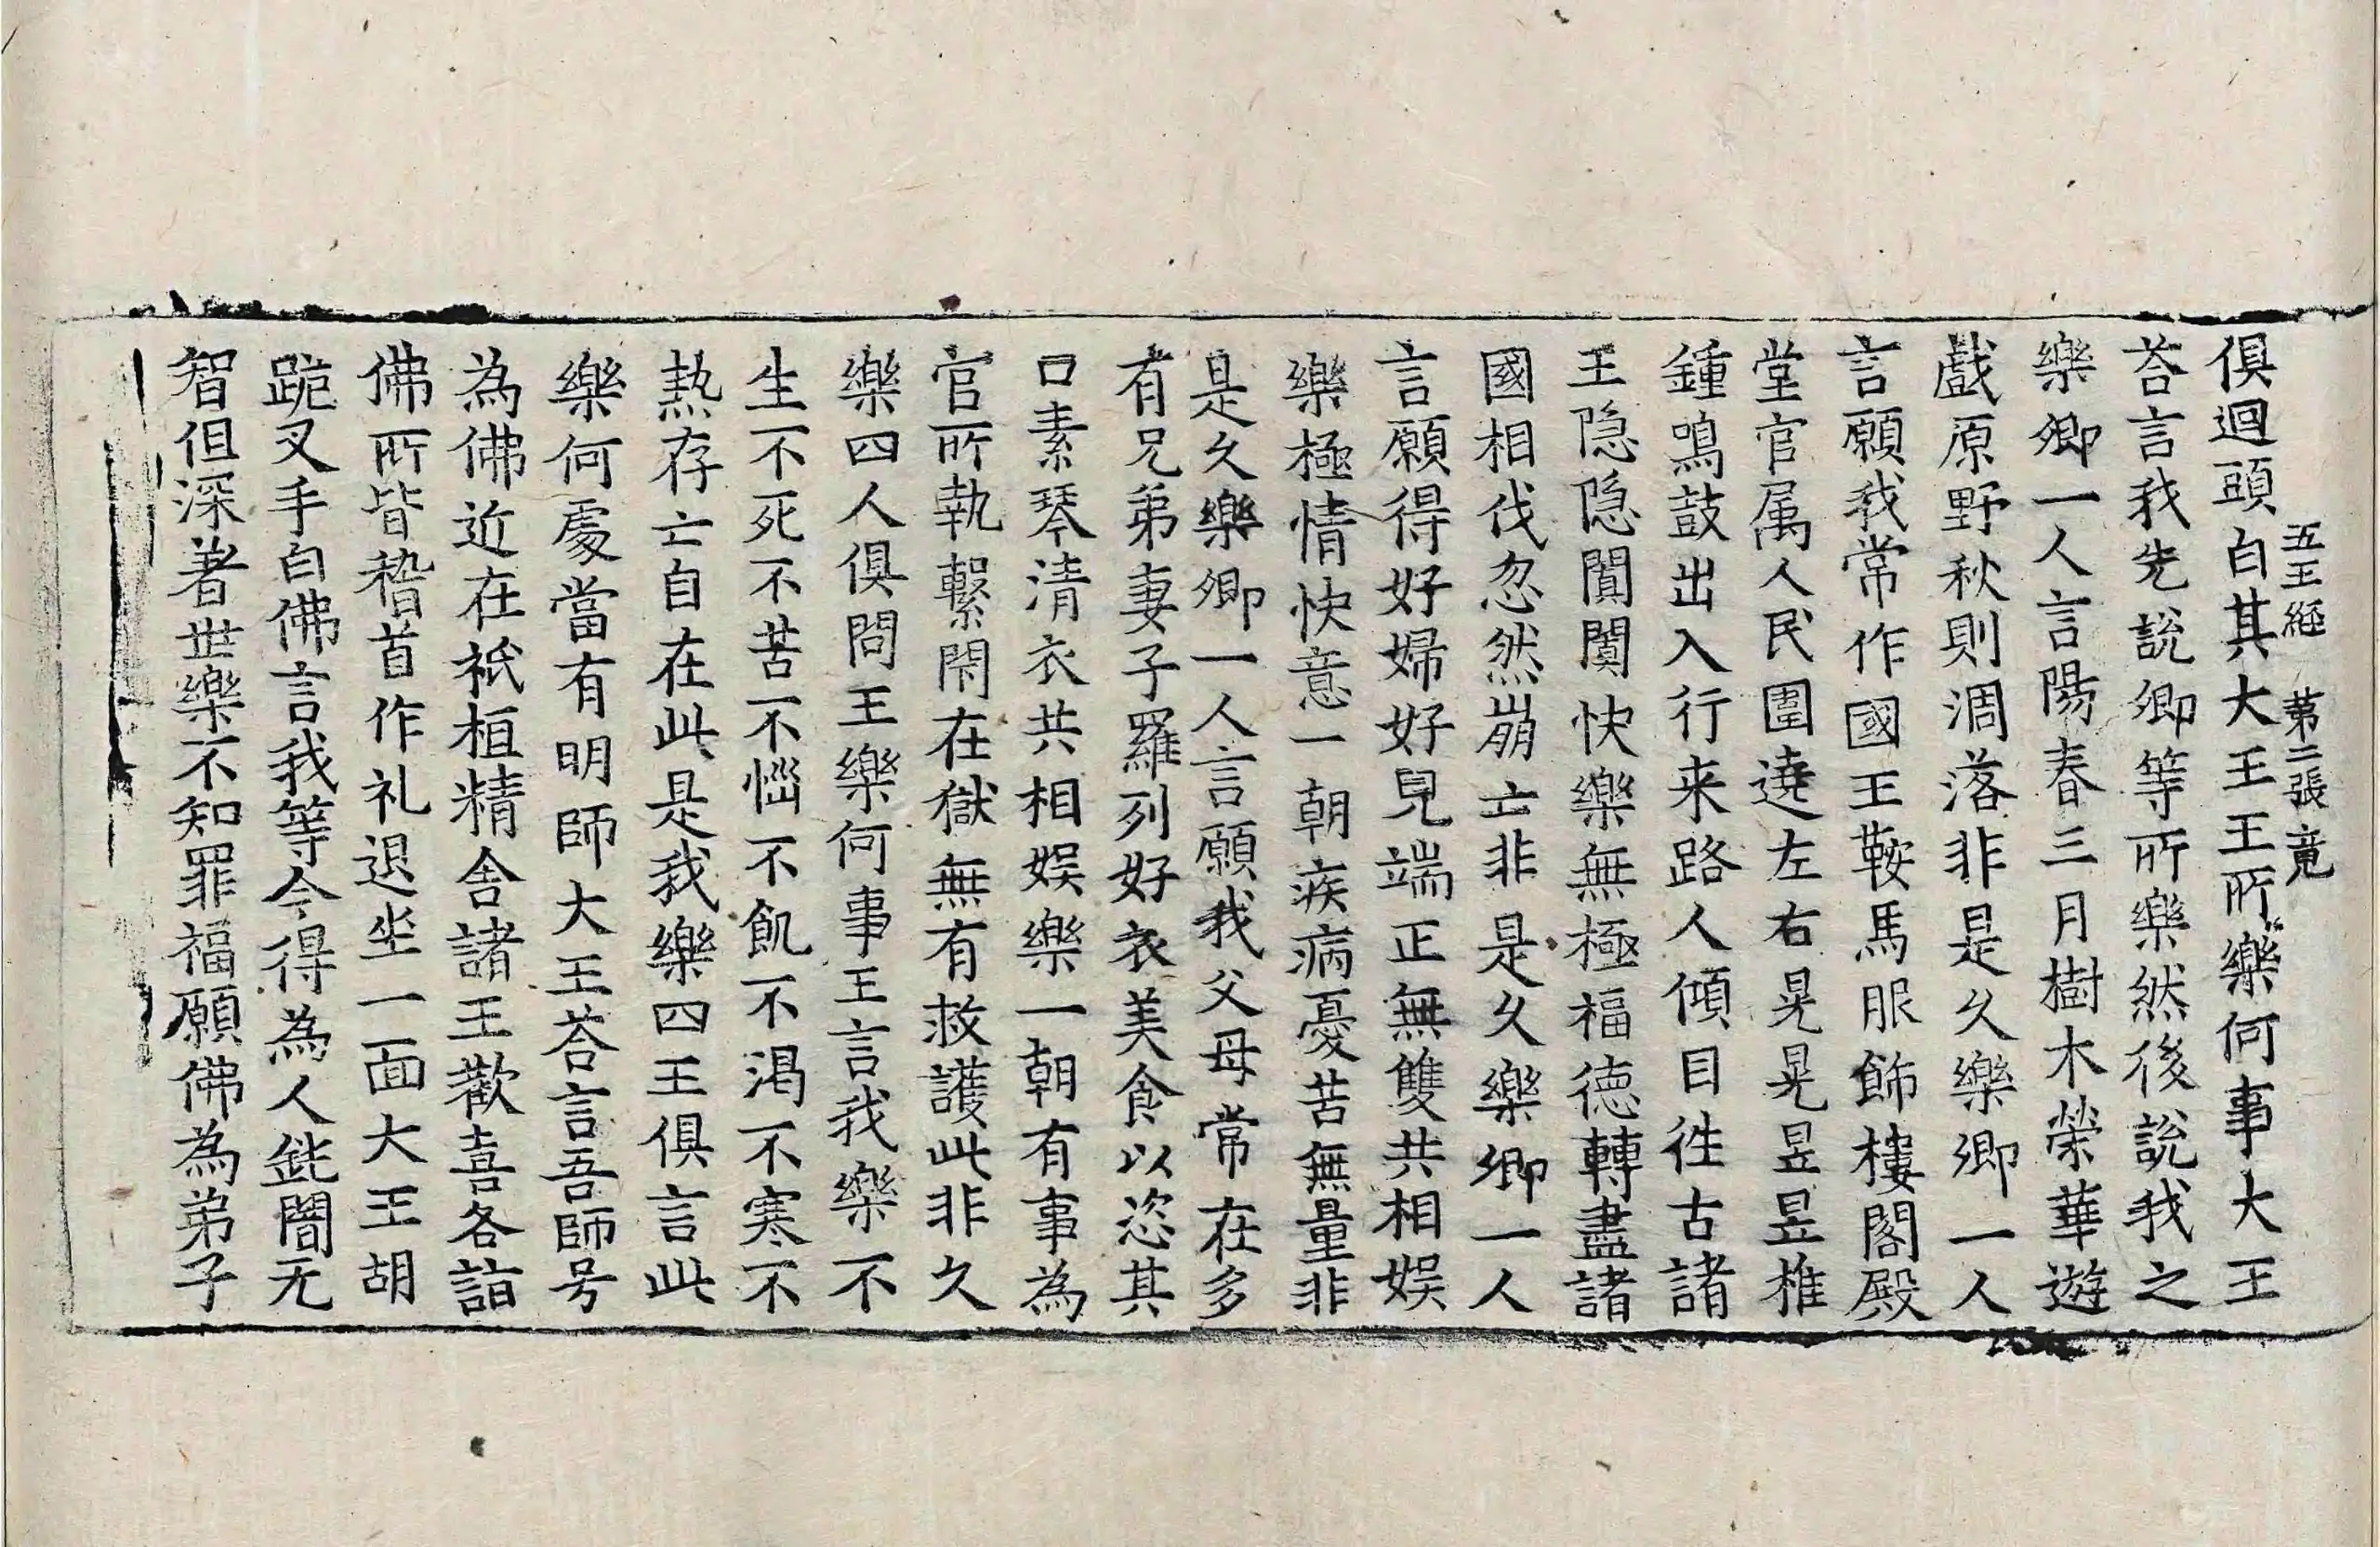 五王經 第二張 竟
俱迴頭白其大王王所樂何事大王
荅言我先說卿等所樂然後說我之
樂卿一人言陽春三月樹木榮華遊
戱原野秋則凋落非是久樂卿一人
言願我常作國王鞍馬服飾樓閣殿
堂官属人民圍遶左右晃晃昱昱椎
鍾鳴鼓出入行来路人傾目徃古諸
王隐隐闐闐快樂無極福德轉盡諸
國相伐忽然崩亡非是久樂卿一人
言願得好婦好兒端正無雙共相娯
樂極情快意一朝疾病憂苦無量非
是久樂卿一人言願我父母常在多
有兄弟妻子羅列好衣美食以恣其
口素琴清衣共相娯樂一朝有事為
官所執繫閇在獄無有救護此非久
樂四人俱問王樂何事王言我樂不
生不死不苦不惱不飢不渇不寒不
熱存亡自在此是我樂四王俱言此
樂何處當有明師大王荅言吾師号
為佛近在祇桓精舍諸王歡喜各詣
佛所皆稽首作礼退坐一面大王胡
跪叉手白佛言我等今得為人鈍闇无
智但深著世樂不知罪福願佛為弟子